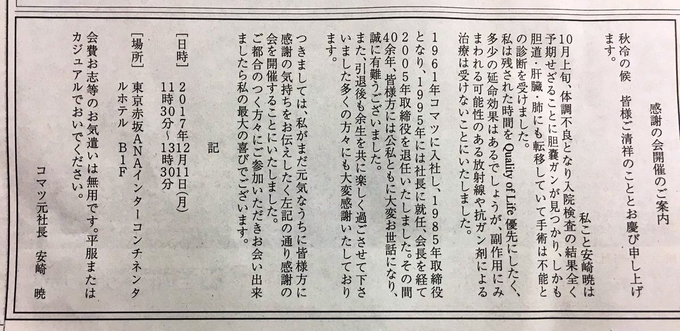 感謝の会開催のご案内
秋冷の候　皆様ご清祥のこととお慶び申し上げ
ます。
私こと安崎暁は
10月上旬、体調不良となり入院検査の結果全く
予期せざることに胆嚢ガンが見つかり、しかも
胆道・肝臓・肺にも転移していて手術は不能と
の診断を受けました。
私は残された時間をQuality of Life優先にしたく、
多少の延命効果はあるでしょうが、副作用にみ
まわれる可能性のある放射線や抗ガン剤による
治療は受けないことにいたしました。
1961年コマツに入社し、1985年取締役
となり、1995年には社長に就任、会長を経て
2005年取締役を退任いたしました。その間
40余年、皆様方には公私ともに大変お世話になり、
誠に有難うございました。
また、引退後も余生を共に楽しく過ごさせて下さ
いました多くの方々にも大変感謝いたしており
ます。
つきましては、私がまだ元気なうちに皆様方に
感謝の気持ちをお伝えしたく左記の通り感謝の
会を開催することにいたしました。
ご都合のつく方々にご参加いただきお会い出来
ましたら私の最大の喜びでございます。
記
［日時］　2017年12月11日（月）
11時30分〜13時30分
［場所］　東京赤坂ANAインターコンチネンタ
ルホテル　B1F
会費お志等のお気遣いは無用です。平服または
カジュアルでおいでください。
コマツ元社長　安崎　暁